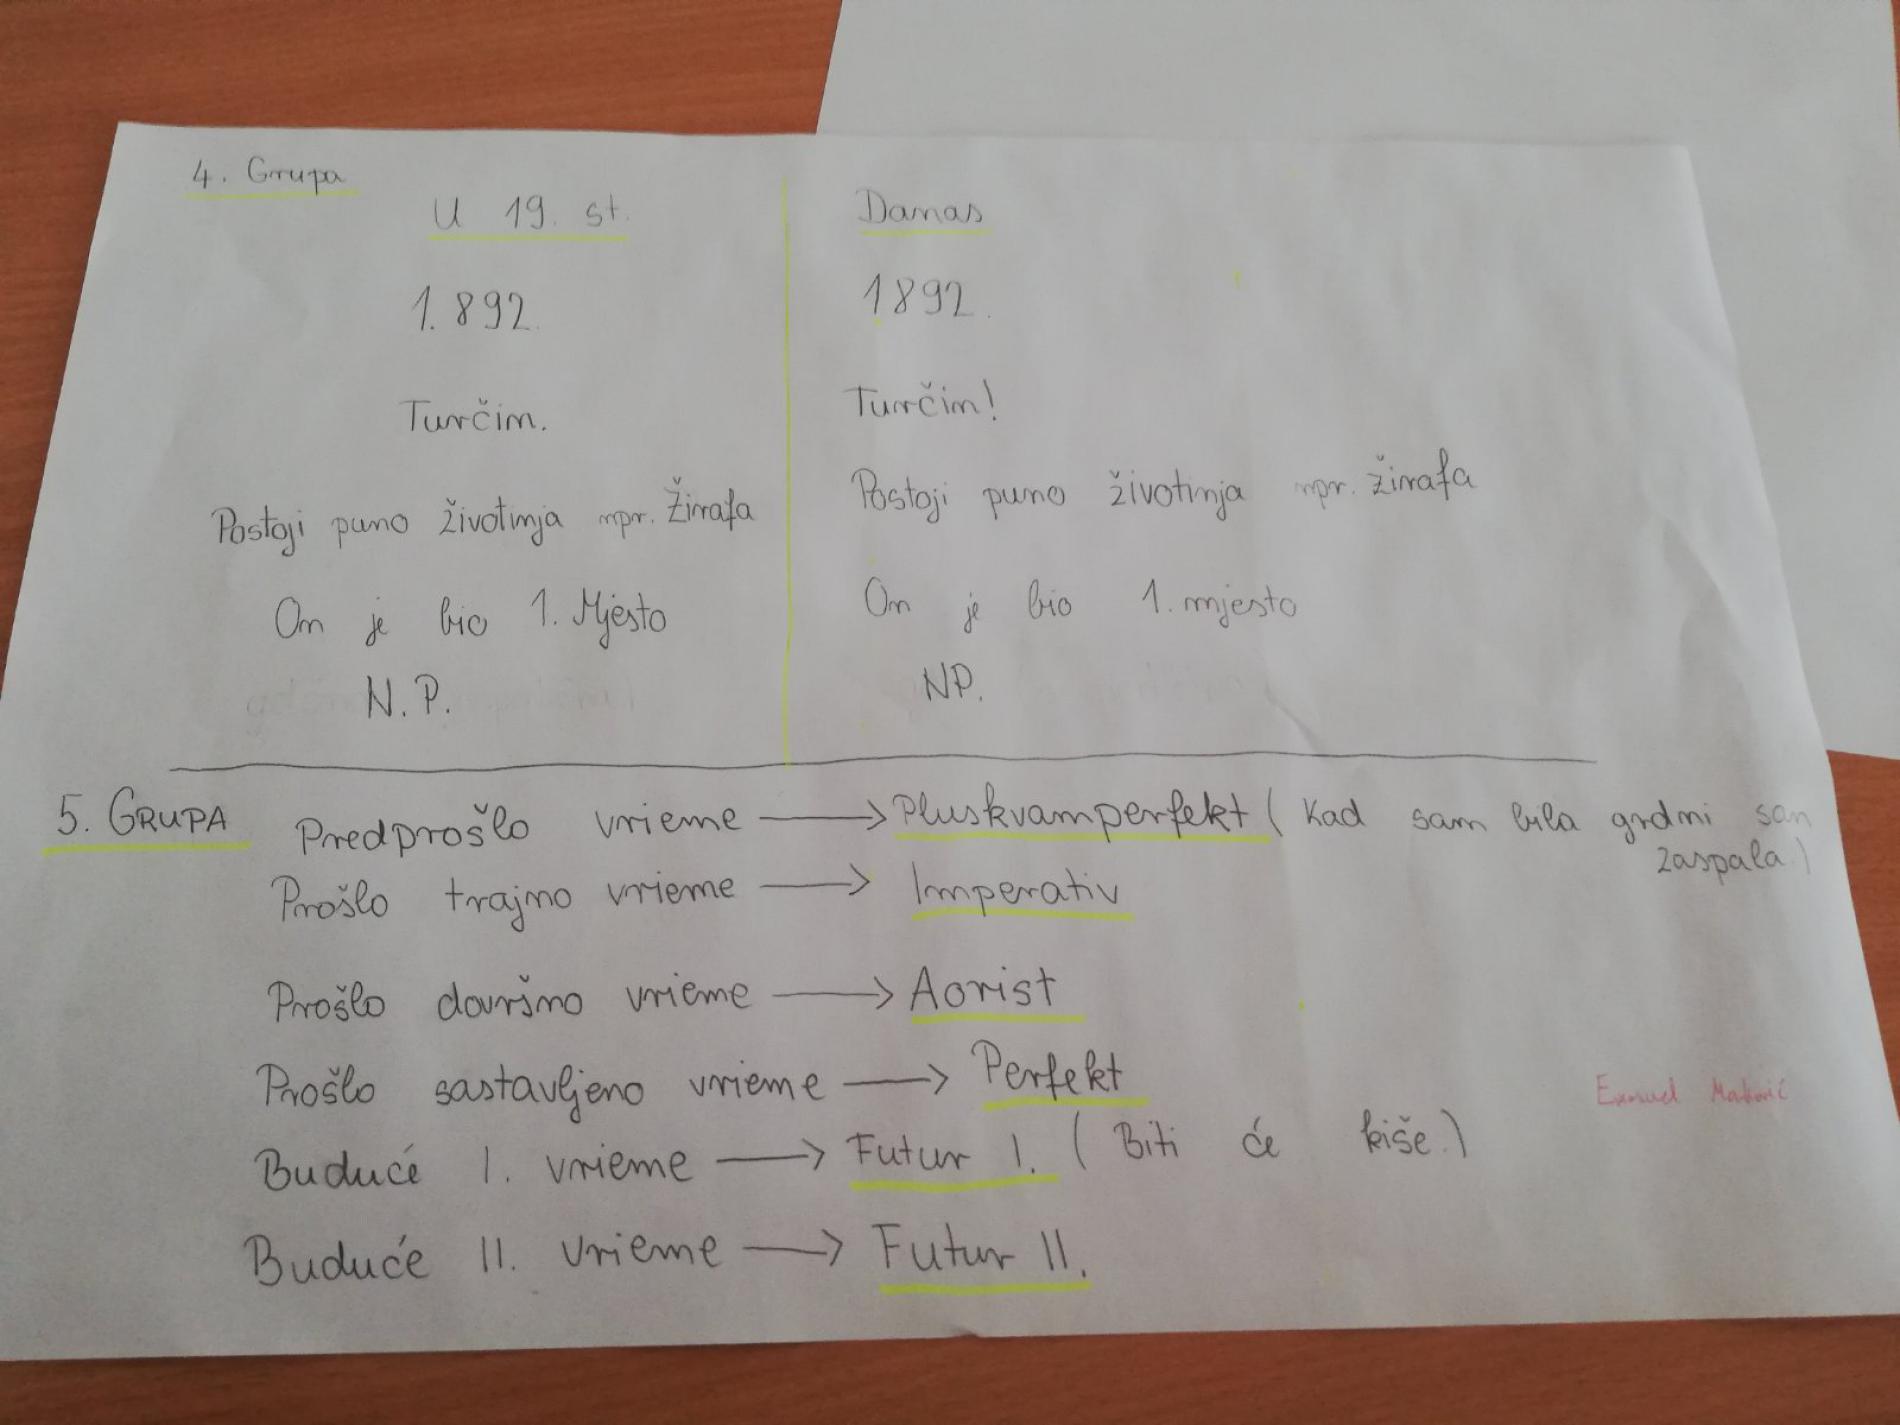 4. Grupa
U 19. st.
1.892.
Turčin.
Postoji puno životinja npr. Žirafa
On je bio 1. Mjesto
N.P.
Danas
1892.
Turčin!
Postoji puno životinja npr. žirafa
On je bio 1. mjesto
NP.
5. GRUPA
Predprošlo vrieme → Pluskvamperfekt ( Kad sam bila grdmi san
zaspala.)
Prošlo trajno vrieme → Imperativ
Prošlo dovršno vrieme → Aorist
Prošlo sastavljeno vrieme → Perfekt
Buduće I. vrieme → Futur I. ( Biti će kiše.)
Buduće II. vrieme → Futur II.